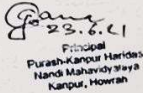 23.6.21
Principal
Purash-Kanpur Haridas
Nandi Mahavidyalaya
Kanpur, Howrah